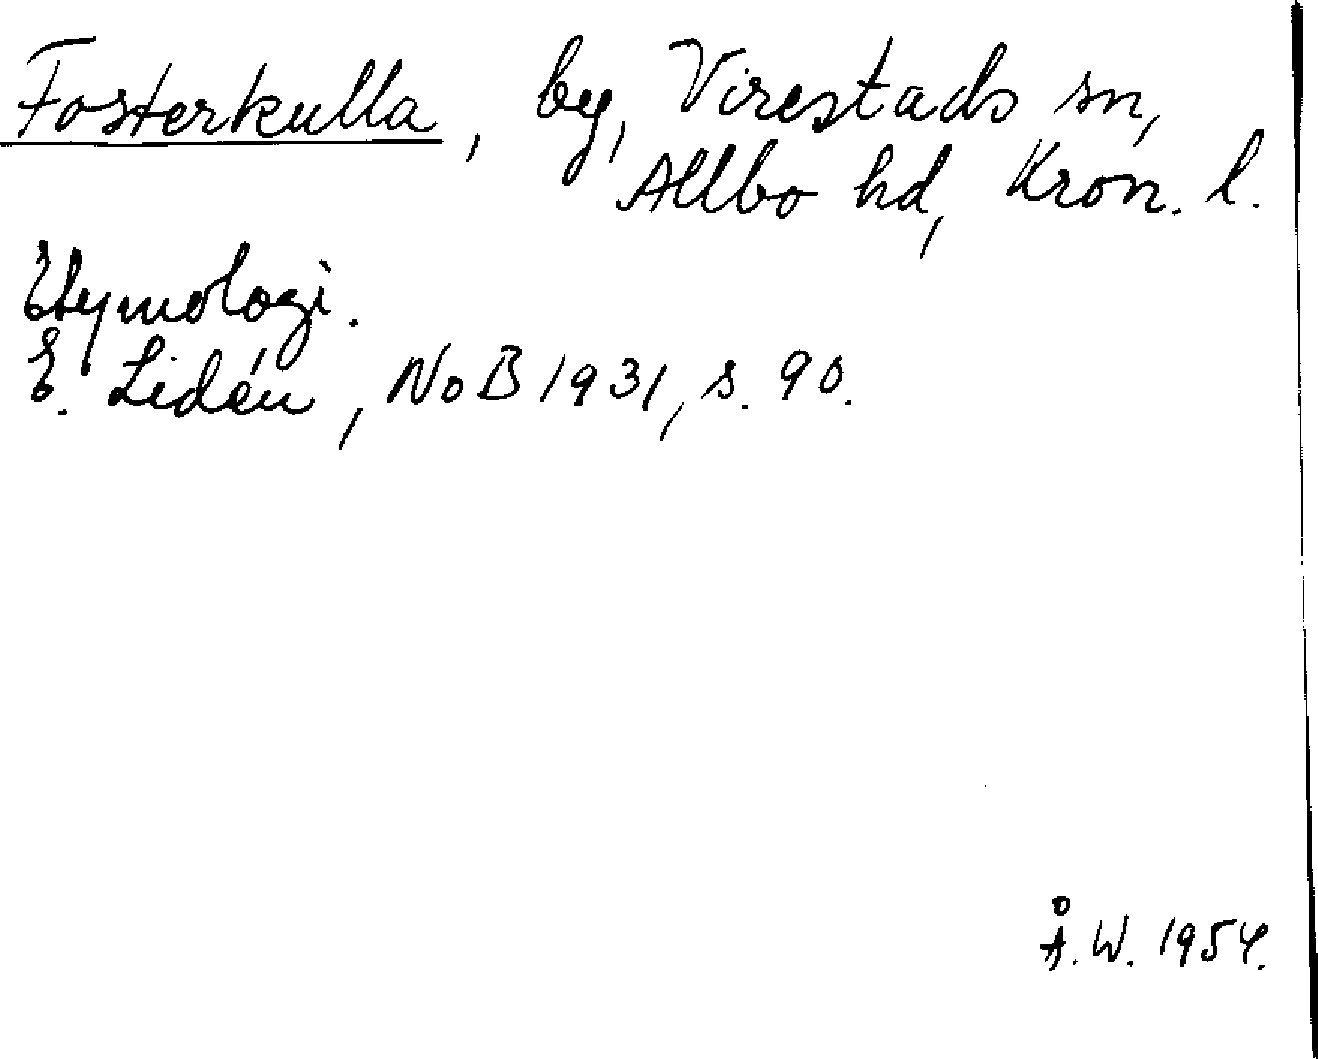 Fosterkulla, by, Virestads sn,
Allbo hd, Kron. l.
Etymologi.
E. Lidén, NoB 1931, s. 90.
Å.W. 1954.